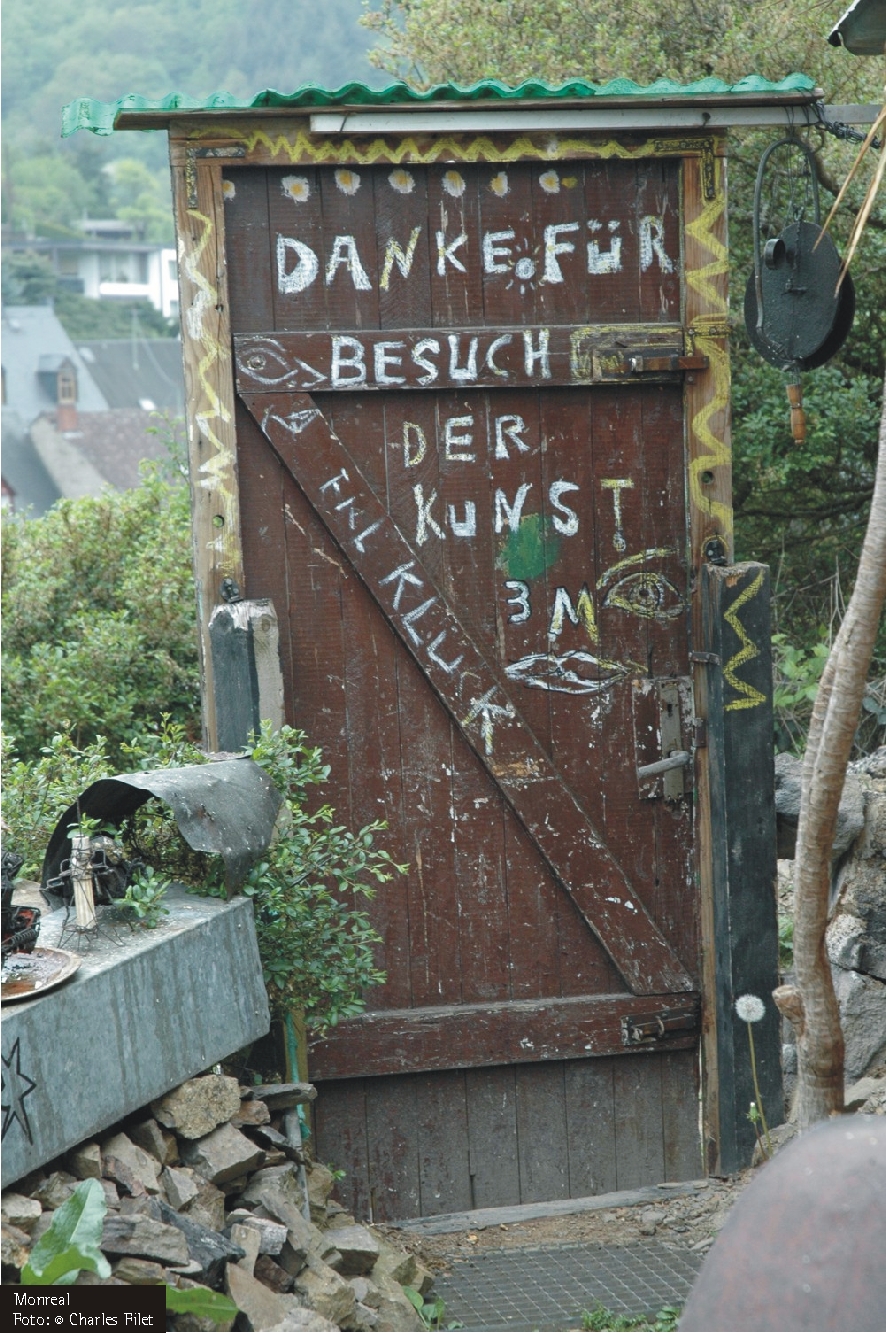 DANKE FÜR
BESUCH
DER
KUNST
3M
KLÜCK
Monreal
Foto: © Charles Filet